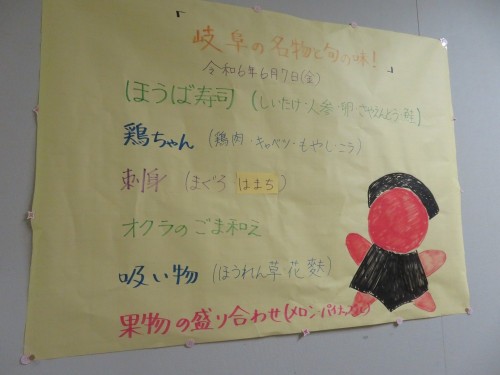 岐阜の名物と旬の味!
令和6年6月7日(金)
ほうば寿司(しいたけ・人参・卵・さやえんどう・鮭)
鶏ちゃん(鶏肉・キャベツ・もやし・ニラ)
刺身(まぐろ はまち)
オクラのごま和え
吸い物(ほうれん草・花麩)
果物の盛り合わせ(メロン・パイナップル)